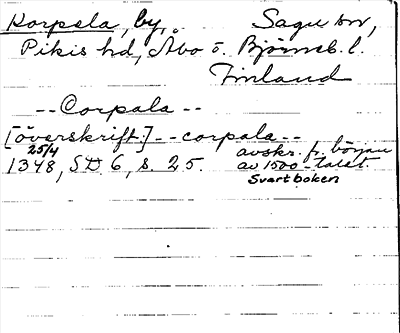 Korpela, by, Sagu sn,
Pikis hd, Åbo o. Björneb. l.
Finland
-- Corpala --
[överskrift:] -- corpala --
25/4
1348, SD 6, s. 25. avskr. fr. början
av 1500-talet.
Svartboken